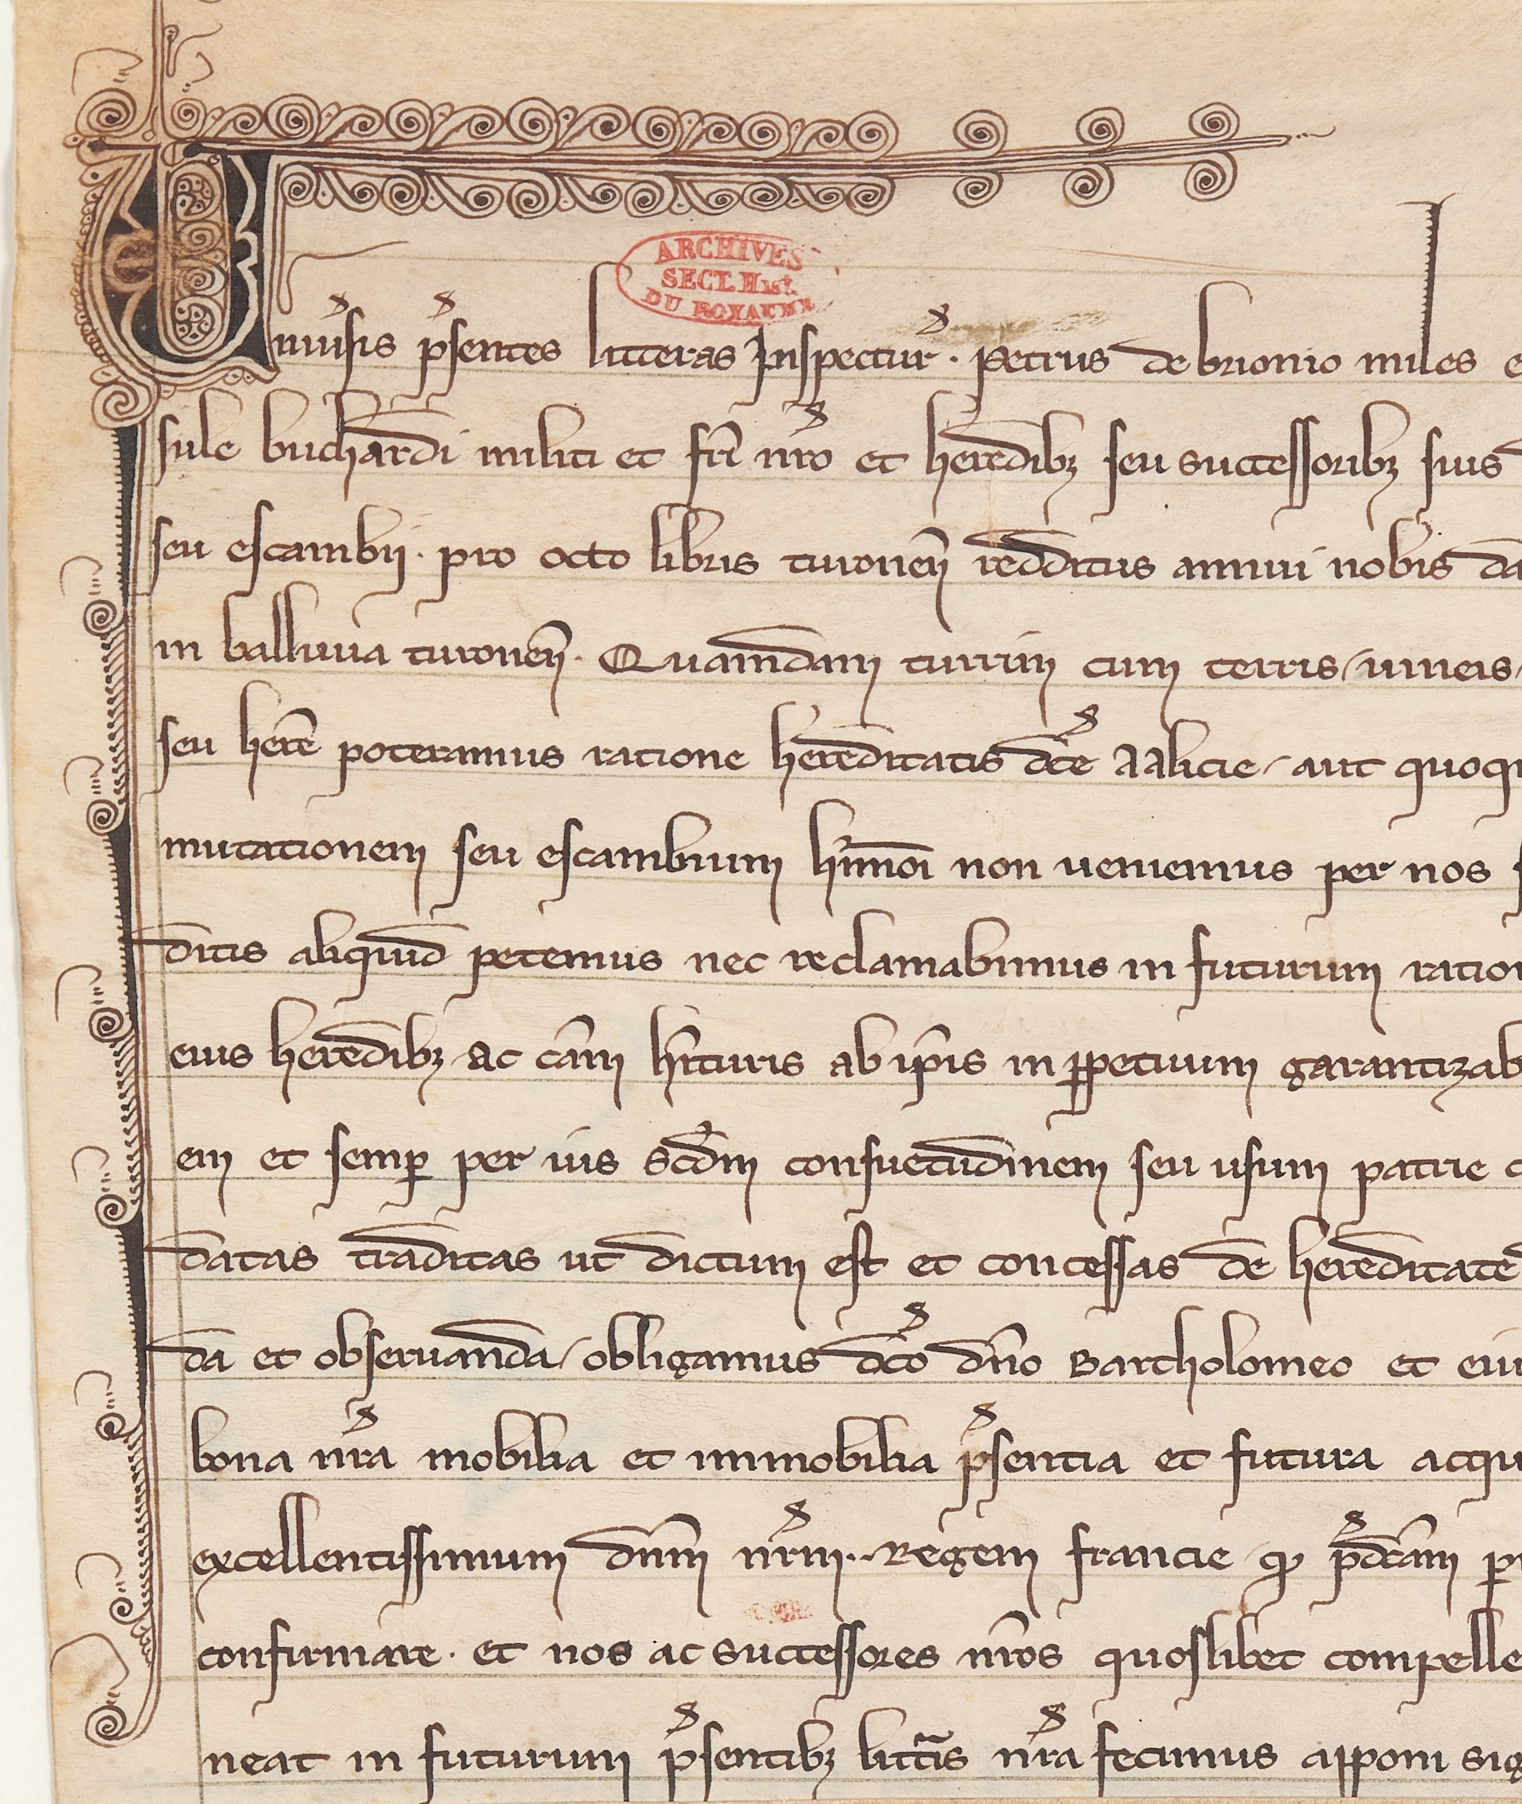 ARCHIVES
SECT. Hist.
DU ROYAUME
Univ̾sis p̾sentes litteras Inspectur̾ · petrus de brionio miles
sule buchardi militi et fr̄i nr̾o et heredibꝫ seu successoribꝫ suis
seu escambij · pro octo libris turonen̄ redditus annui nobis da
in ballivia turonen̄ · Quamdam turrim cum terris / vineis /
seu here poteramus ratione hereditatis dc̾e Aalicie / aut quoqu
mutationem seu escambium hm̄oi non veniemus per nos
ditis aliquid petemus nec reclamabimus in futurum ratio
eius heredibꝫ ac cām hītur̄is ab ip̄is in ꝑpetuum garantizab
em et semꝑ per ius scd̄m consuetudinem seu usum patrie
datas traditas ut dictum est et concessas de hereditate
da et observanda / obligamus dc̾o dn̄o Bartholomeo et eiu
bona nr̾a mobilia et immobilia p̾sentia et futura acqu
excellentissimum dn̄m nr̾m ·· Regem francie qͦ p̾dc̄am
confirmare · et nos ac successores nr̄os quoslibet compelle
neat in futurum p̾sentibꝫ litt̄is nr̾a fecimus apponi sig